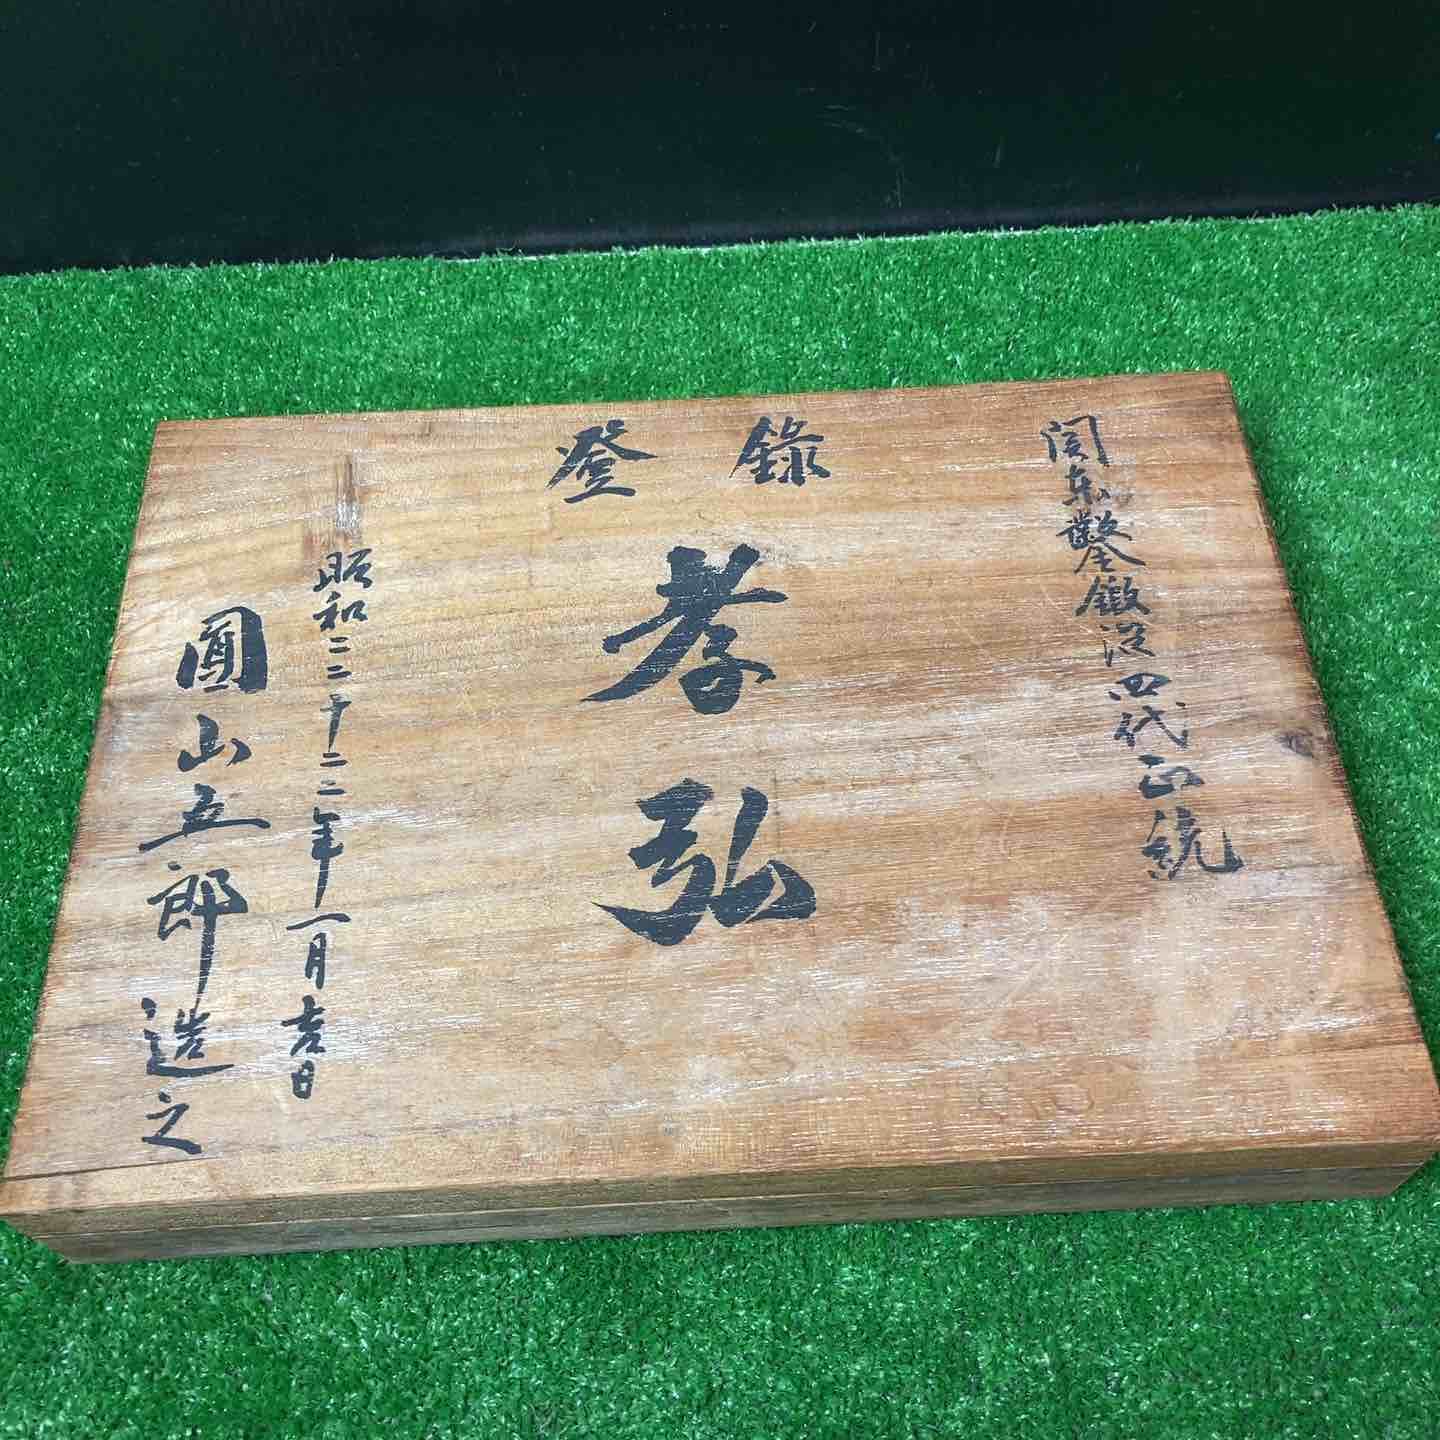 関東鑿鍛冶四代正統
登錄
孝弘
昭和三十三年一月吉日
圓山五郎造之